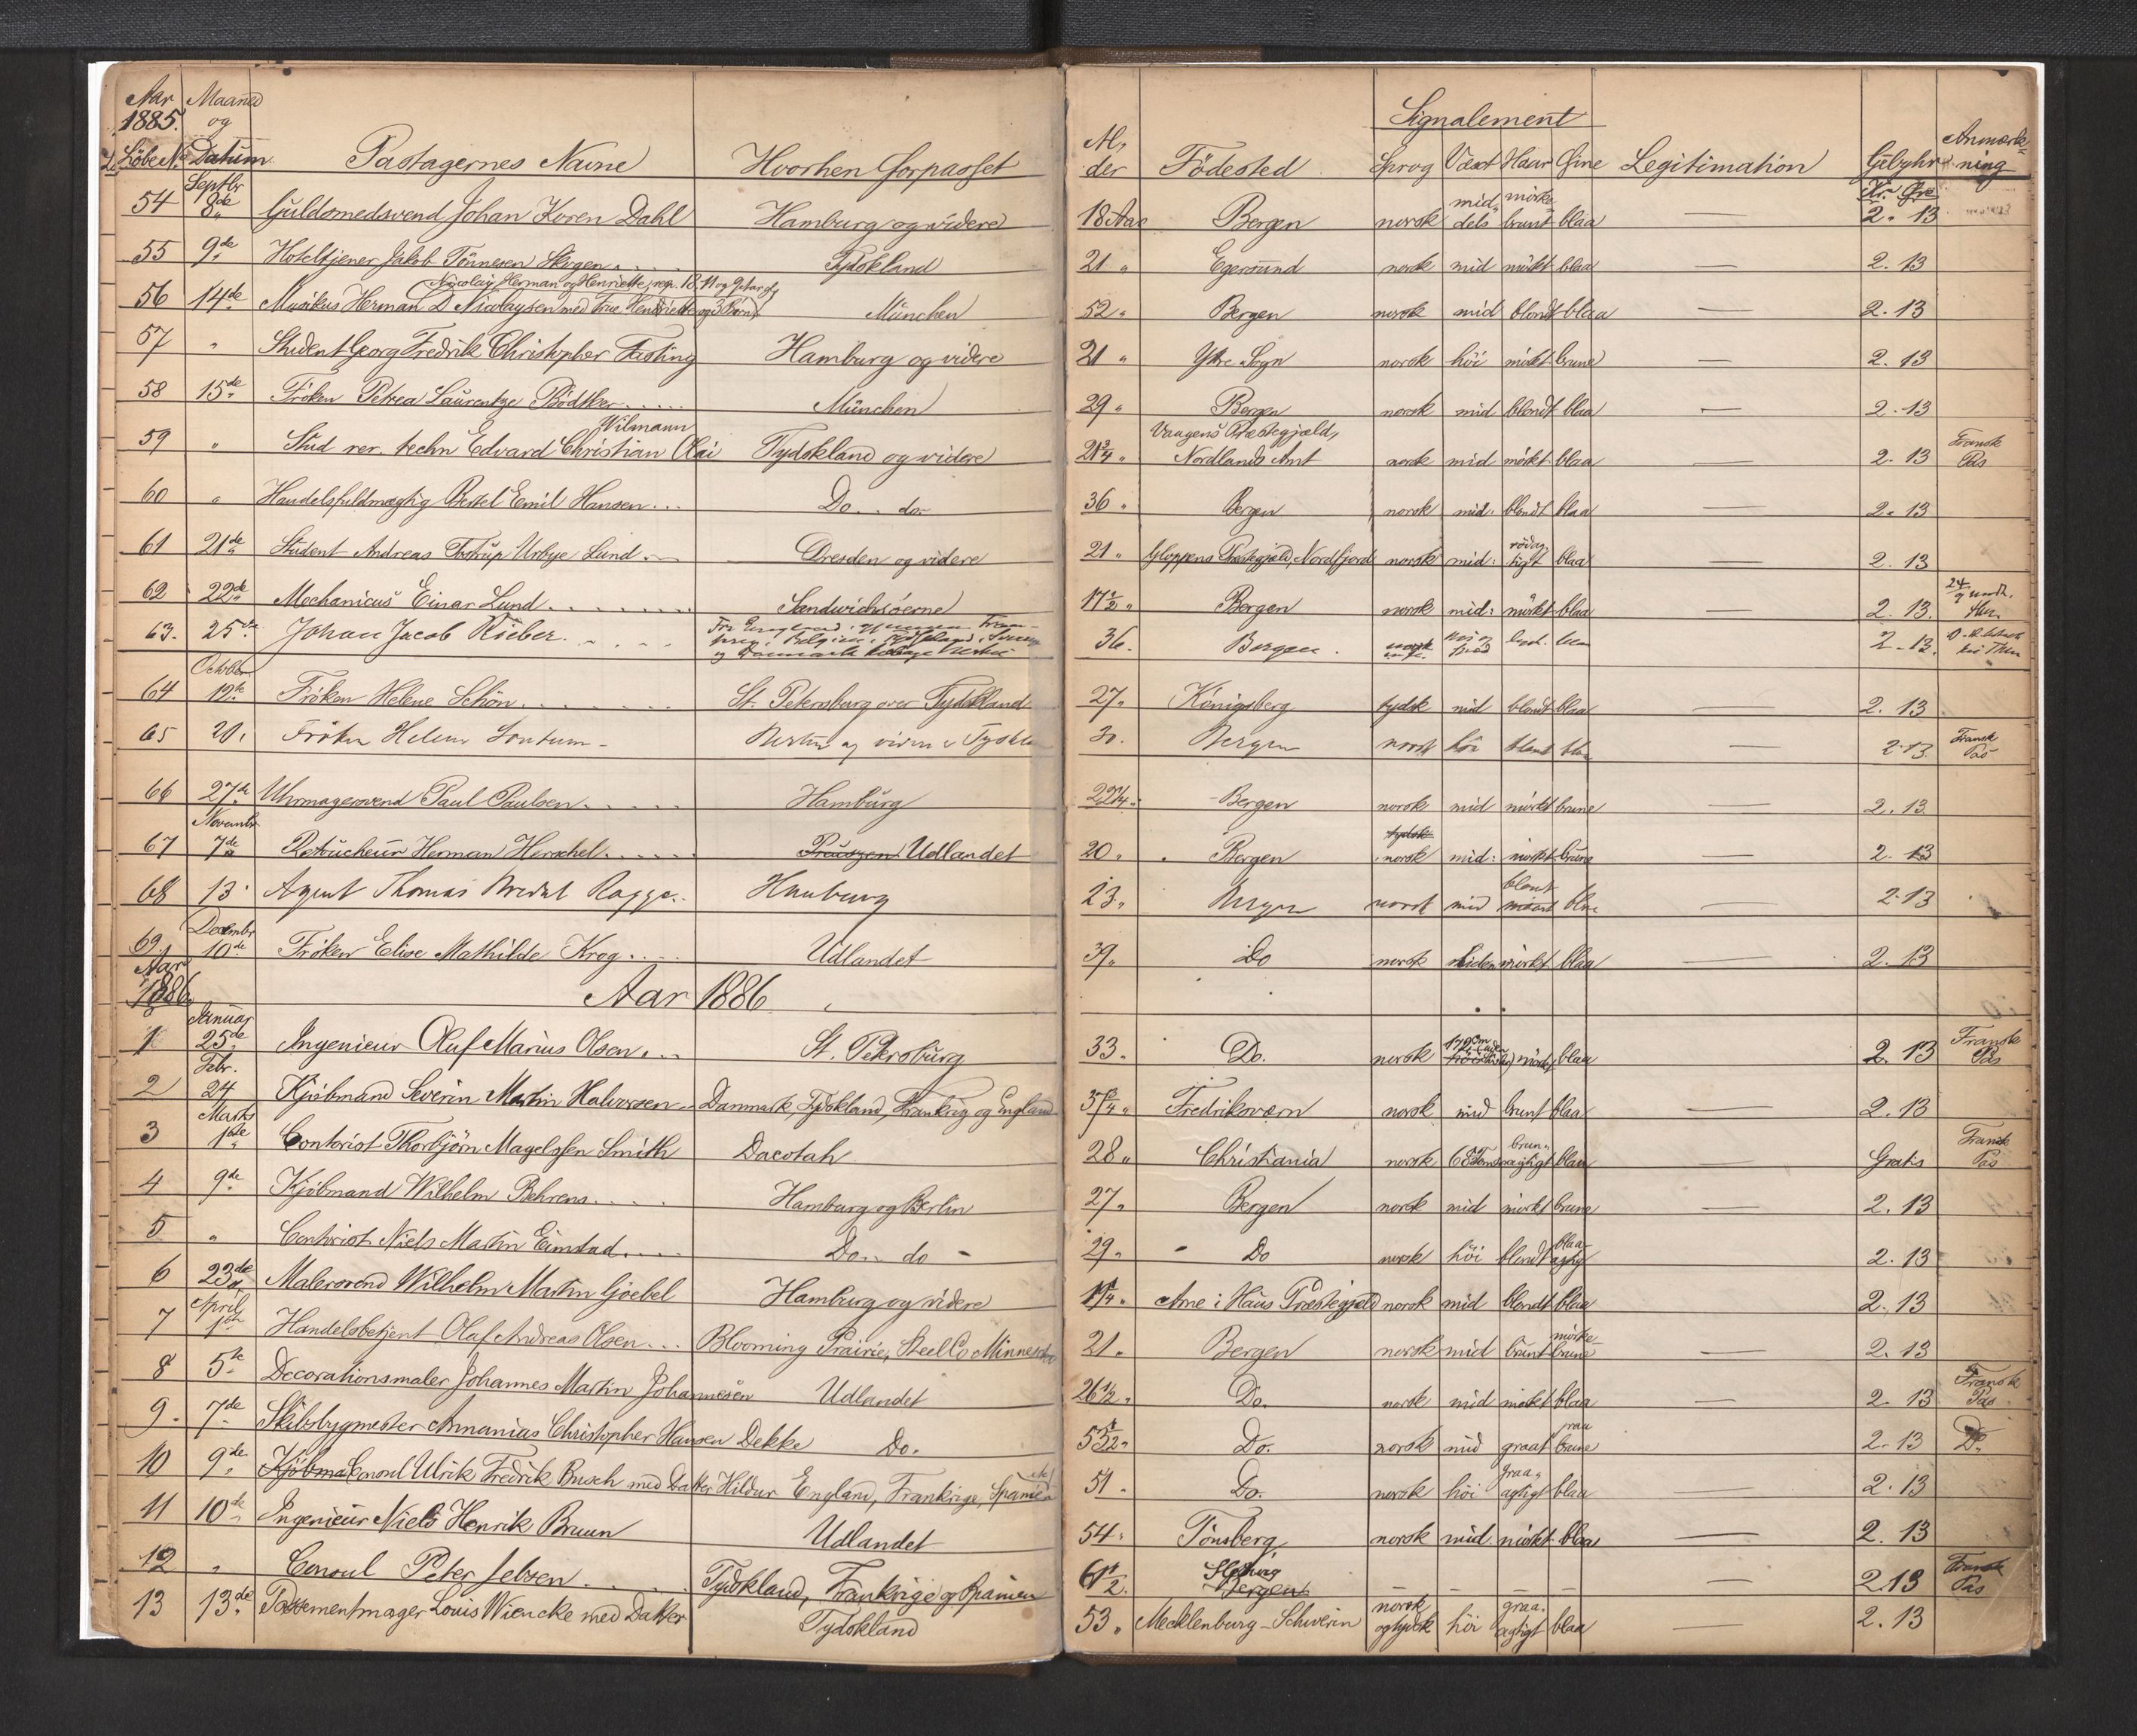 Aar Maaned Signalement
1885. og Al, Anmærk-
Löbe No. Datum Passagernes Navne Hvorhen forpasset der Födested Sprog Væxt Haar Öine Legitimation Gebyhr ning
Septbr mid, mörke Kr. Øre
54 8de Guldsmedsvend Johan Koren Dahl Hamburg og videre 18 Aar Bergen norsk dels brunt blaa — 2. 13
55 9de Hoteltjener Jakob Tönnesen Skogen Tydskland 21 " Egersund norsk mid mörkt blaa — 2. 13
Nicolay, Herman og Henriette, resp. 13, 11 og 9 Aar
56 14de Musikus Herman D Nicolaysen med Frue Hendriette og 3 Börn München 52 " Bergen norsk mid blondt blaa — 2. 13
57 " Student Georg Fredrik Christopher Fasting Hamburg og videre 21 " Ytre Sogn norsk höi mörkt brune — 2. 13
58 15de Fröken Petrea Laurentze Bödtker München 29 " Bergen norsk mid blondt blaa — 2. 13
Wilmann Vaagens Præstegjæld, Fransk
59 " Stud rer. techn Edvard Christian Olai Tydskland og videre 21 3/4 " Nordlands Amt norsk mid mörkt blaa — 2. 13 Pas
60 " Handelsfuldmægtig Bertel Emil Hansen Do. do. 36 " Bergen norsk mid. blondt blaa — 2. 13
rödag
61 21de Student Andreas Tostrup Urbye Lund Dresden og videre 21 " Gloppens Præstegjæld, Nordfjord norsk mid: tigt blaa 2. 13
62 22de Mechanicus Einar Lund Sandwichsöerne 17 1/2 " Bergen norsk mid: mörkt blaa — 2. 13.
63. 25de Johan Jacob Rieber. 36. Bergen. norsk — 2. 13.
October
64 12te Fröken Helene Schön St. Petersburg over Tydskland 27 " Königsberg tydsk mid blondt blaa — 2. 13
65 20. Fröken Helene Sontum Berlin og videre i Tyskla 30. Bergen norsk höi blondt blaa — 2. 13. Fransk Pas
66 27de Uhrmagersvend Paul Paulsen Hamburg 22 1/4 " Bergen norsk mid mörkt brune — 2. 13.
Novembr tydsk
67 7de Retoucheur Herman Herschel Preussen Udlandet 20 " Bergen norsk mid: mörkt brune — 2. 13
blont
68 13 Agent Thomas Bredal Rogge Hamburg 23 " Bergen norsk mid mörkt blaa — 2. 13
Decembr
69. 10de Fröken Elise Mathilde Krog Udlandet 39 " Do norsk liden mörkt blaa — 2. 13
Aar
1886 Aar 1886
Januar
1 25de Ingenieur Oluf Marius Olsen St. Petersburg 33. Do. norsk mörkt blaa — 2. 13 Fransk Pas
Febr.
2 24 Kjöbmand Severin Martin Halvorsen Danmark, Tydskland, Frankrig og England 37 3/4 " Fredriksværn norsk mid brunt blaa — 2. 13
Marts brun,
3 1ste Contorist Thorbjörn Magelssen Smith Dacotah 28 " Christiania norsk 68 Toms agtigt blaa — Gratis Fransk Pas
4 9de Kjöbmand Wilhelm Behrens Hamburg og Berlin 27 " Bergen norsk mid mörkt brune — 2. 13
blaa-
5 " Contorist Niels Martin Eimstad Do. do 29 " Do norsk höi blondt agtig 2. 13
6 23de Malersvend Wilhelm Martin Gjøebel Hamburg og videre Arne i Haus Præstegjæld norsk mid blondt blaa 2. 13
April mörke
7 1ste Handelsbetjent Olaf Andreas Olsen Blooming Prairie, Steel Co Minnesota 21 " Bergen norsk mid brunt brune — 2. 13
8 5te Decorationsmaler Johannes Martin Johannesen Udlandet 26 1/2 " Do. norsk mid mörkt blaa — 2. 13 Fransk Pas
graa
9. 7de Skibsbygmester Annanias Christopher Hansen Dekke Do. 55 1/2 " Do. norsk mid graat brune 2. 13 Do.
graa,
10 9de Kjöbma Consul Ulrik Fredrik Busch med Datter Hildur England, Frankrige, Spanien etc 51 " Do. norsk höi agtigt blaa — 2. 13
11 10de Ingenieur Niels Henrik Bruun Udlandet 54 " Tönsberg norsk mid mörkt blaa — 2. 13
12 " Consul Peter Jebsen Tydskland, Frankrige og Spanien 61 1/2. Bergen — — — — — 2.13 Fransk Pas
norsk graa,
13 13de Possementmager Louis Wiencke med Datter Tydskland 53 " Mecklenburg-Schwerin og tydsk höi agtigt blaa — 2. 13